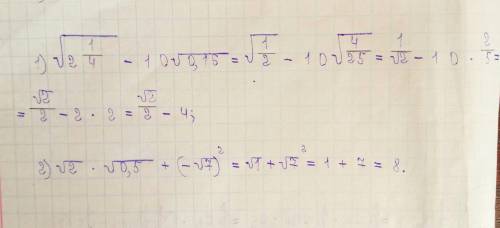 1) √(2 1/4) - 10√0,16 = √(1/2) - 10√(4/25) = 1/√2 - 10 · 2/5 =
= √2/2 - 2 · 2 = √2/2 - 4;
2) √2 · √0,5 + (-√7)² = √1 + √7² = 1 + 7 = 8.